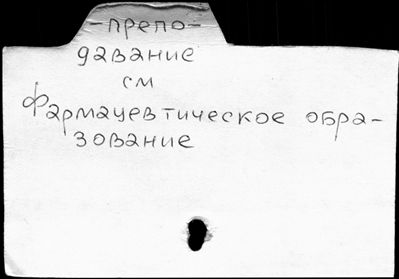 -препо-
давание
см
Фармацевтическое обра-
зование